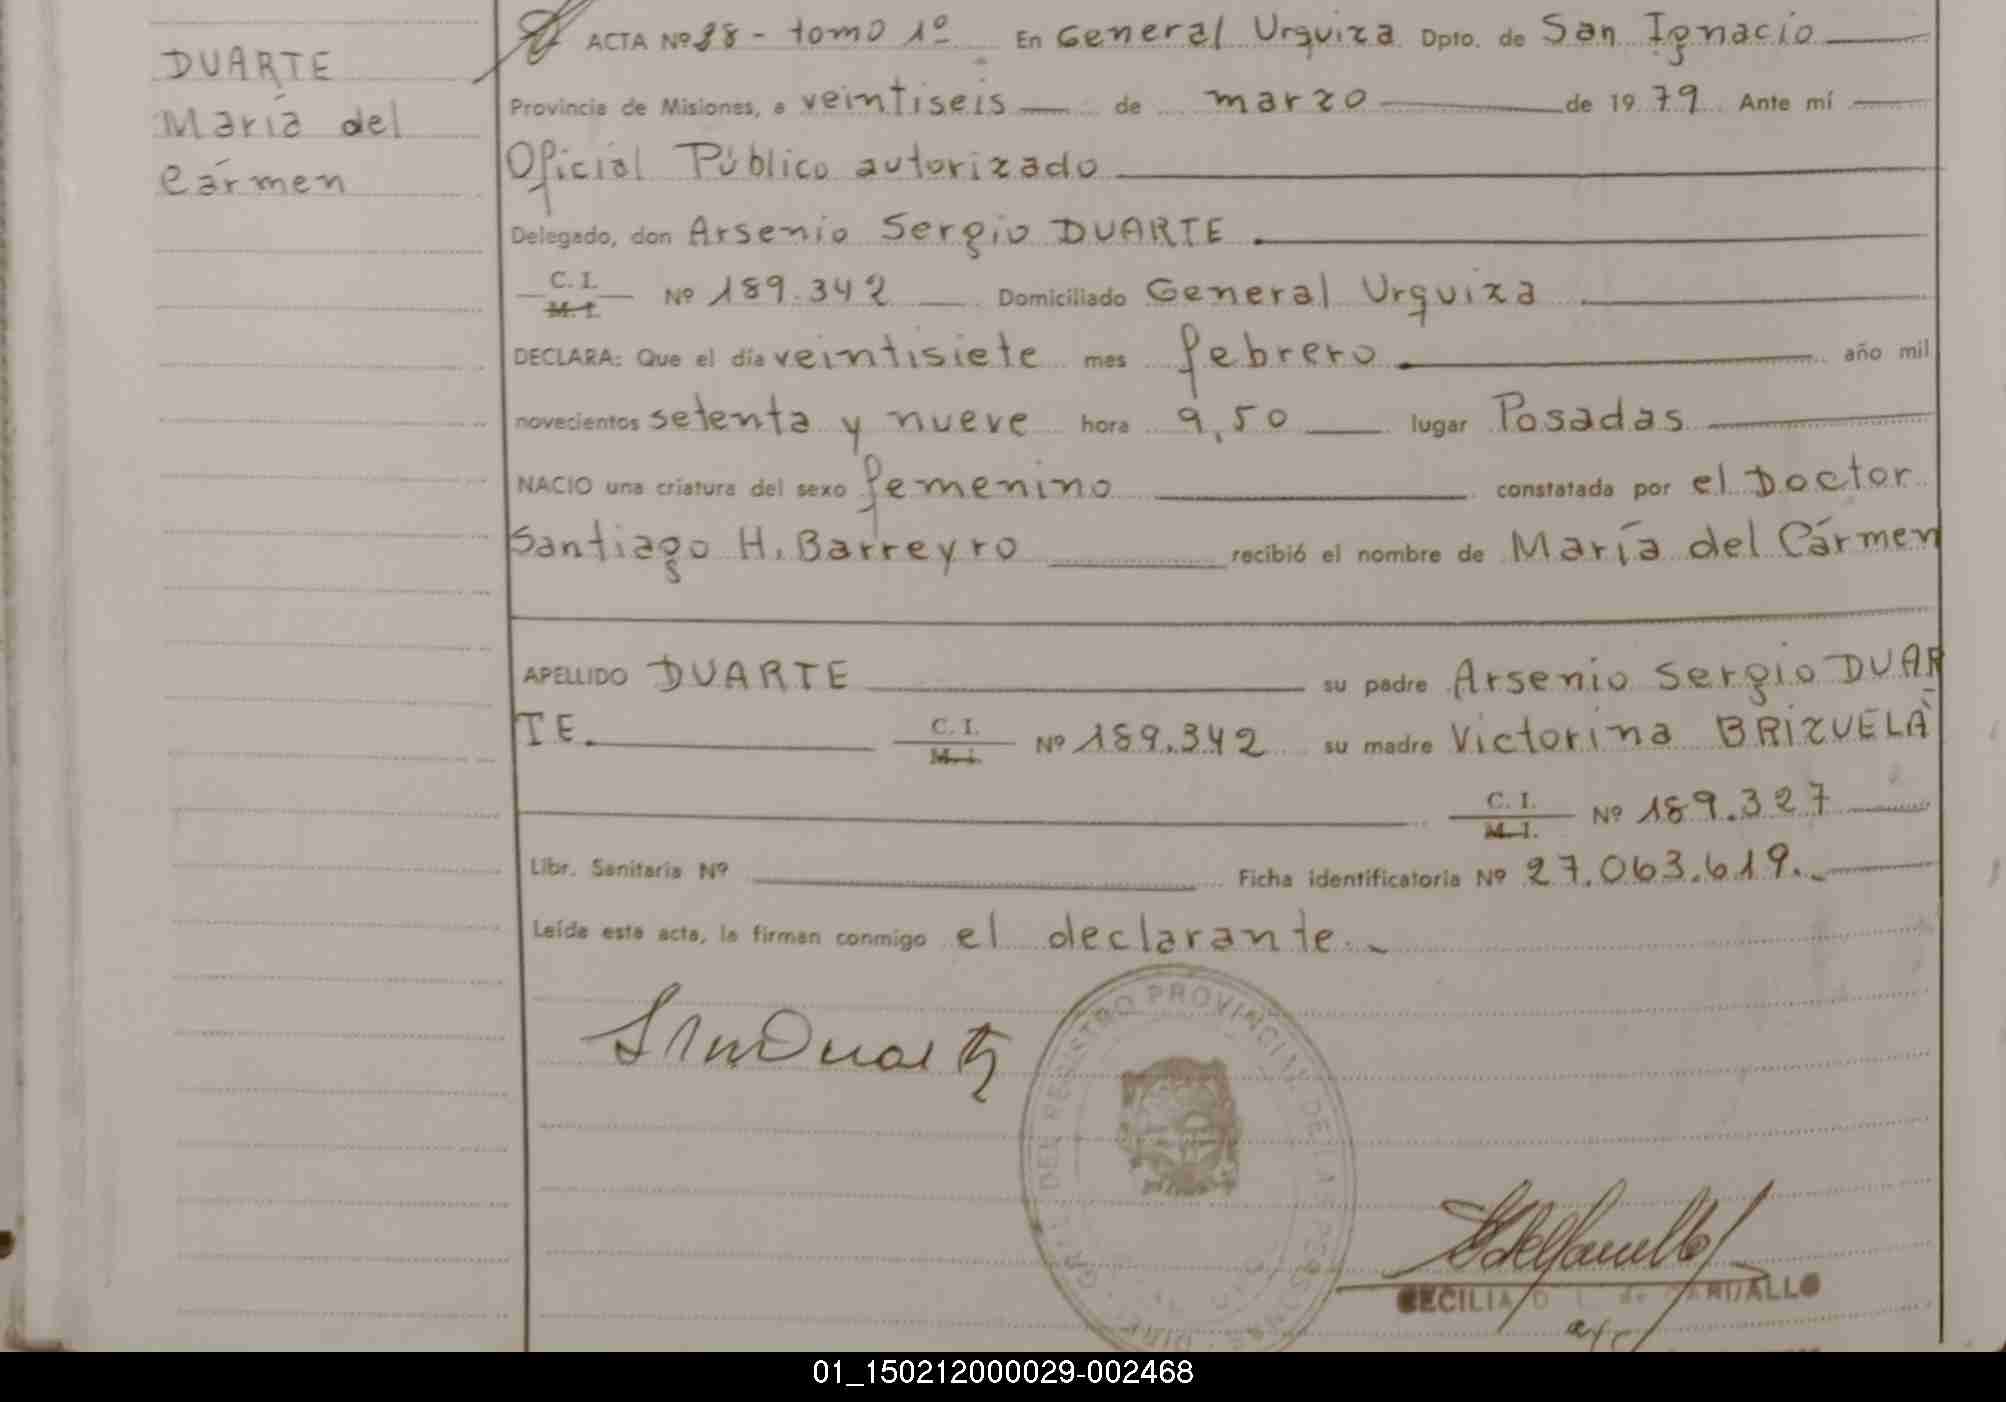 DUARTE
María del
Cármen
ACTA Nº 38 - tomo 1º En General Urquiza Dpto. de San Ignacio
Provincia de Misiones, a veintiseis de marzo de 1979 Ante mí
Oficial Público autorizado
Delegado, don Arsenio Sergio DUARTE.
C. I.
M. I. Nº 189.342 Domiciliado General Urquiza
DECLARA: Que el día veintisiete mes febrero año mil
novecientos setenta y nueve hora 9,50 lugar Posadas
NACIO una criatura del sexo femenino constatada por el Doctor
Santiago H. Barreyro recibió el nombre de María del Cármen
APELLIDO DUARTE su padre Arsenio Sergio DUAR
TE. C. I. Nº 189.342 su madre Victorina BRIZUELA
M. I.
C. I. Nº 189.327
M. I.
Libr. Sanitaria Nº Ficha identificatoria Nº 27.063.619.-
Leída esta acta, la firman conmigo el declarante.-
DEL REGISTRO PROVINCIAL DE LAS PERSONAS
CECILIA D
01_150212000029-002468